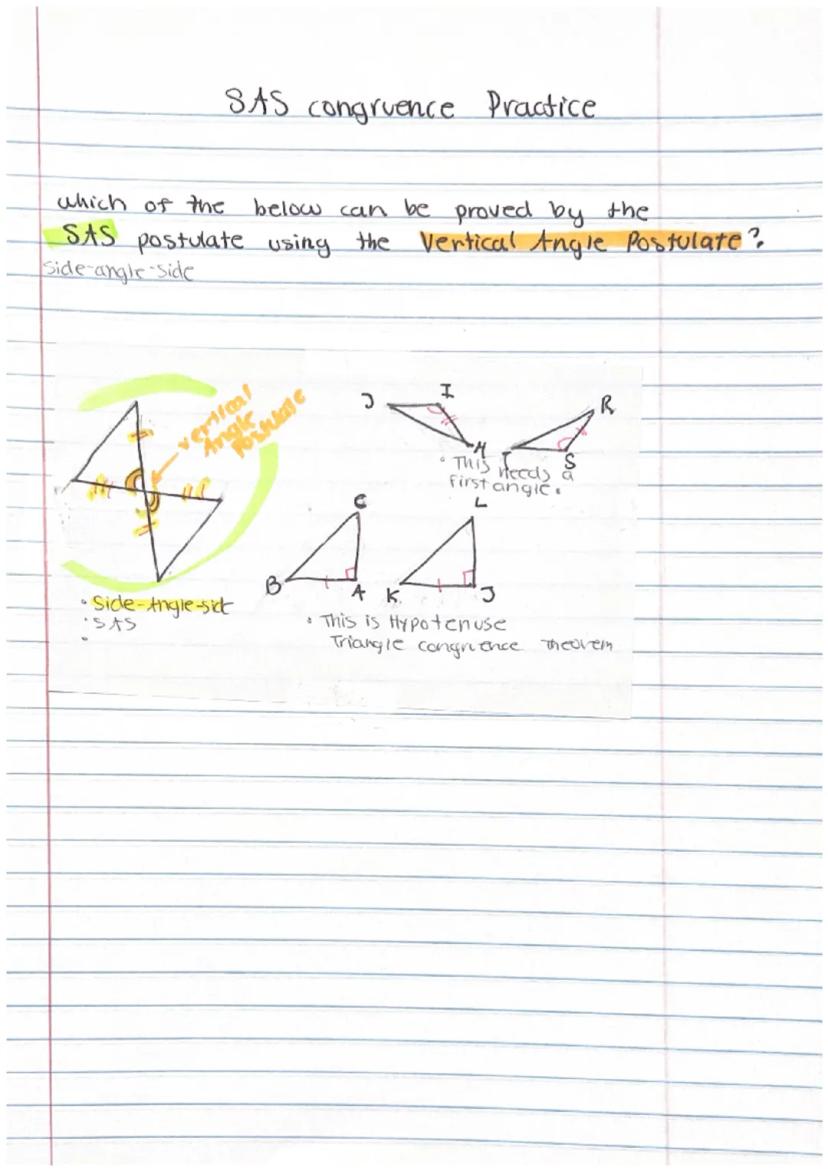 SAS congruence Practice
which of the below can be proved by the
SAS postulate using the Vertical Angle Postulate?
side-angle-side
vertical
Angle
Postulate
J I H
R S T
• This needs a
first angle.
C B A
L K J
• Side-Angle-side
• SAS
•
• This is Hypotenuse
Triangle congruence theorem